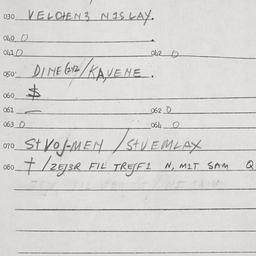 030 VELOTEN3 N1SLAY.
040 0
041 0 042 0
050 DINE /KAVENE.
060 $
061 — 062 0
063 0 064 0
070 StVOJ-MEN /StUEMLAX
080 † /ZEJ3R FIL TREJF1 N, M1T SAM Q